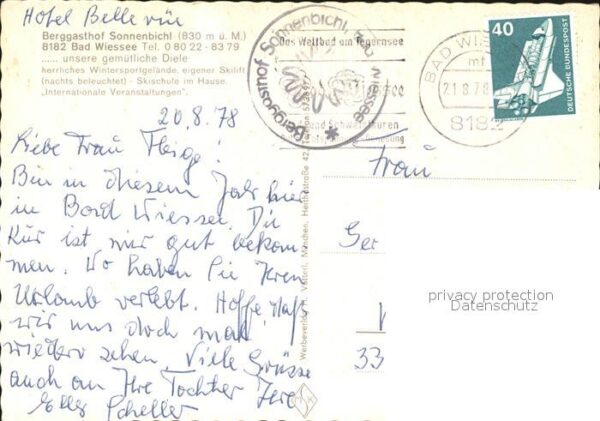 Hotel Belle vue
Berggasthof Sonnenbichl (830 m ü. M.)
8182 Bad Wiessee Tel. 0 80 22 - 83 79
..... unsere gemütliche Diele
herrliches Wintersportgelände, eigener Skilift
(nachts beleuchtet) - Skischule im Hause.
„Internationale Veranstaltungen".
20.8.78
Liebe Frau
Bin in diesem Jahr hier
in Bad Wiessee. Die
Kur ist mir gut bekom
men. Wo haben Sie Ihren
Urlaub verlebt. Hoffe, daß
wir uns doch mal
wieder sehen. Viele Grüsse
auch an Ihre Tochter Ihre
Elly Scheller
Berggasthof Sonnenbichl, Bad Wiessee
Das Weltbad am Tegernsee
BAD WIESSEE
mt
21.8.78
8182
40
DEUTSCHE BUNDESPOST
Werbeverlag H. Vatterl, München, Herthastraße 42, Telefon
Frau
Ger
33
privacy protection
Datenschutz